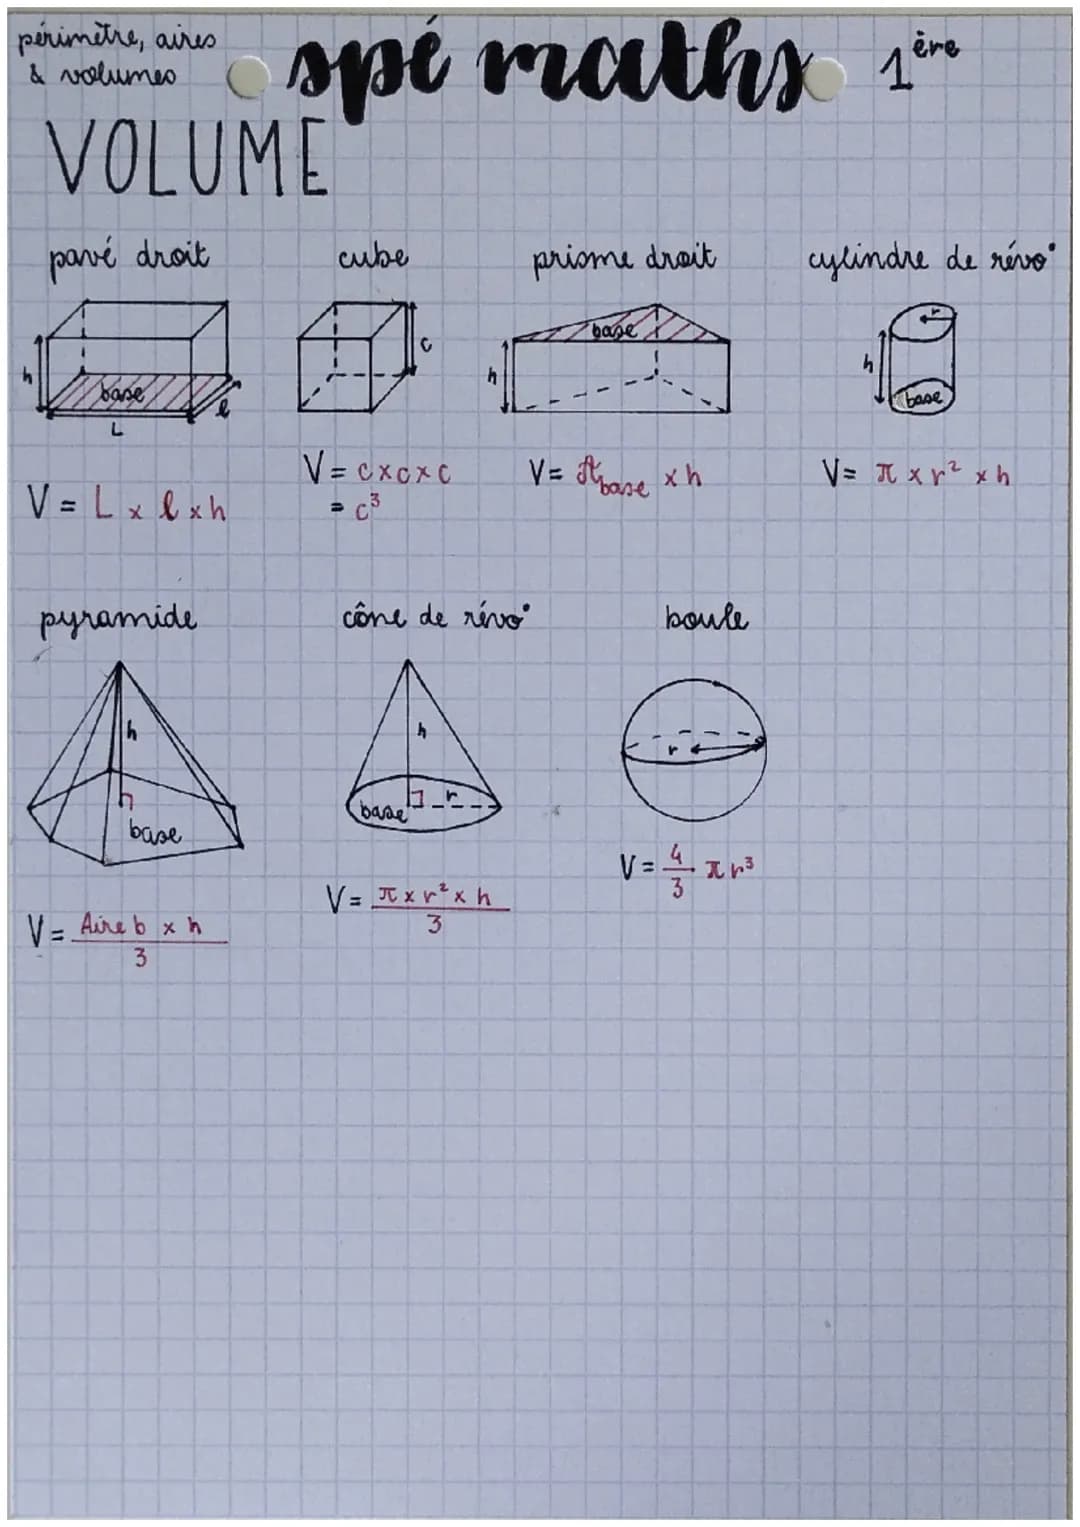 périmètre, aires
& volumes
spé maths
1ère
VOLUME
pavé droit
h
base
l
L
V = L x l x h
cube
c
V = c x c x c
= c³
prisme droit
base
h
V = 𝒜base x h
cylindre de révo°
r
h
base
V = π x r² x h
pyramide
h
base
V = Aire b x h
3
cône de révo°
h
base
r
V = π x r² x h
3
boule
r
V = 4/3 π r³